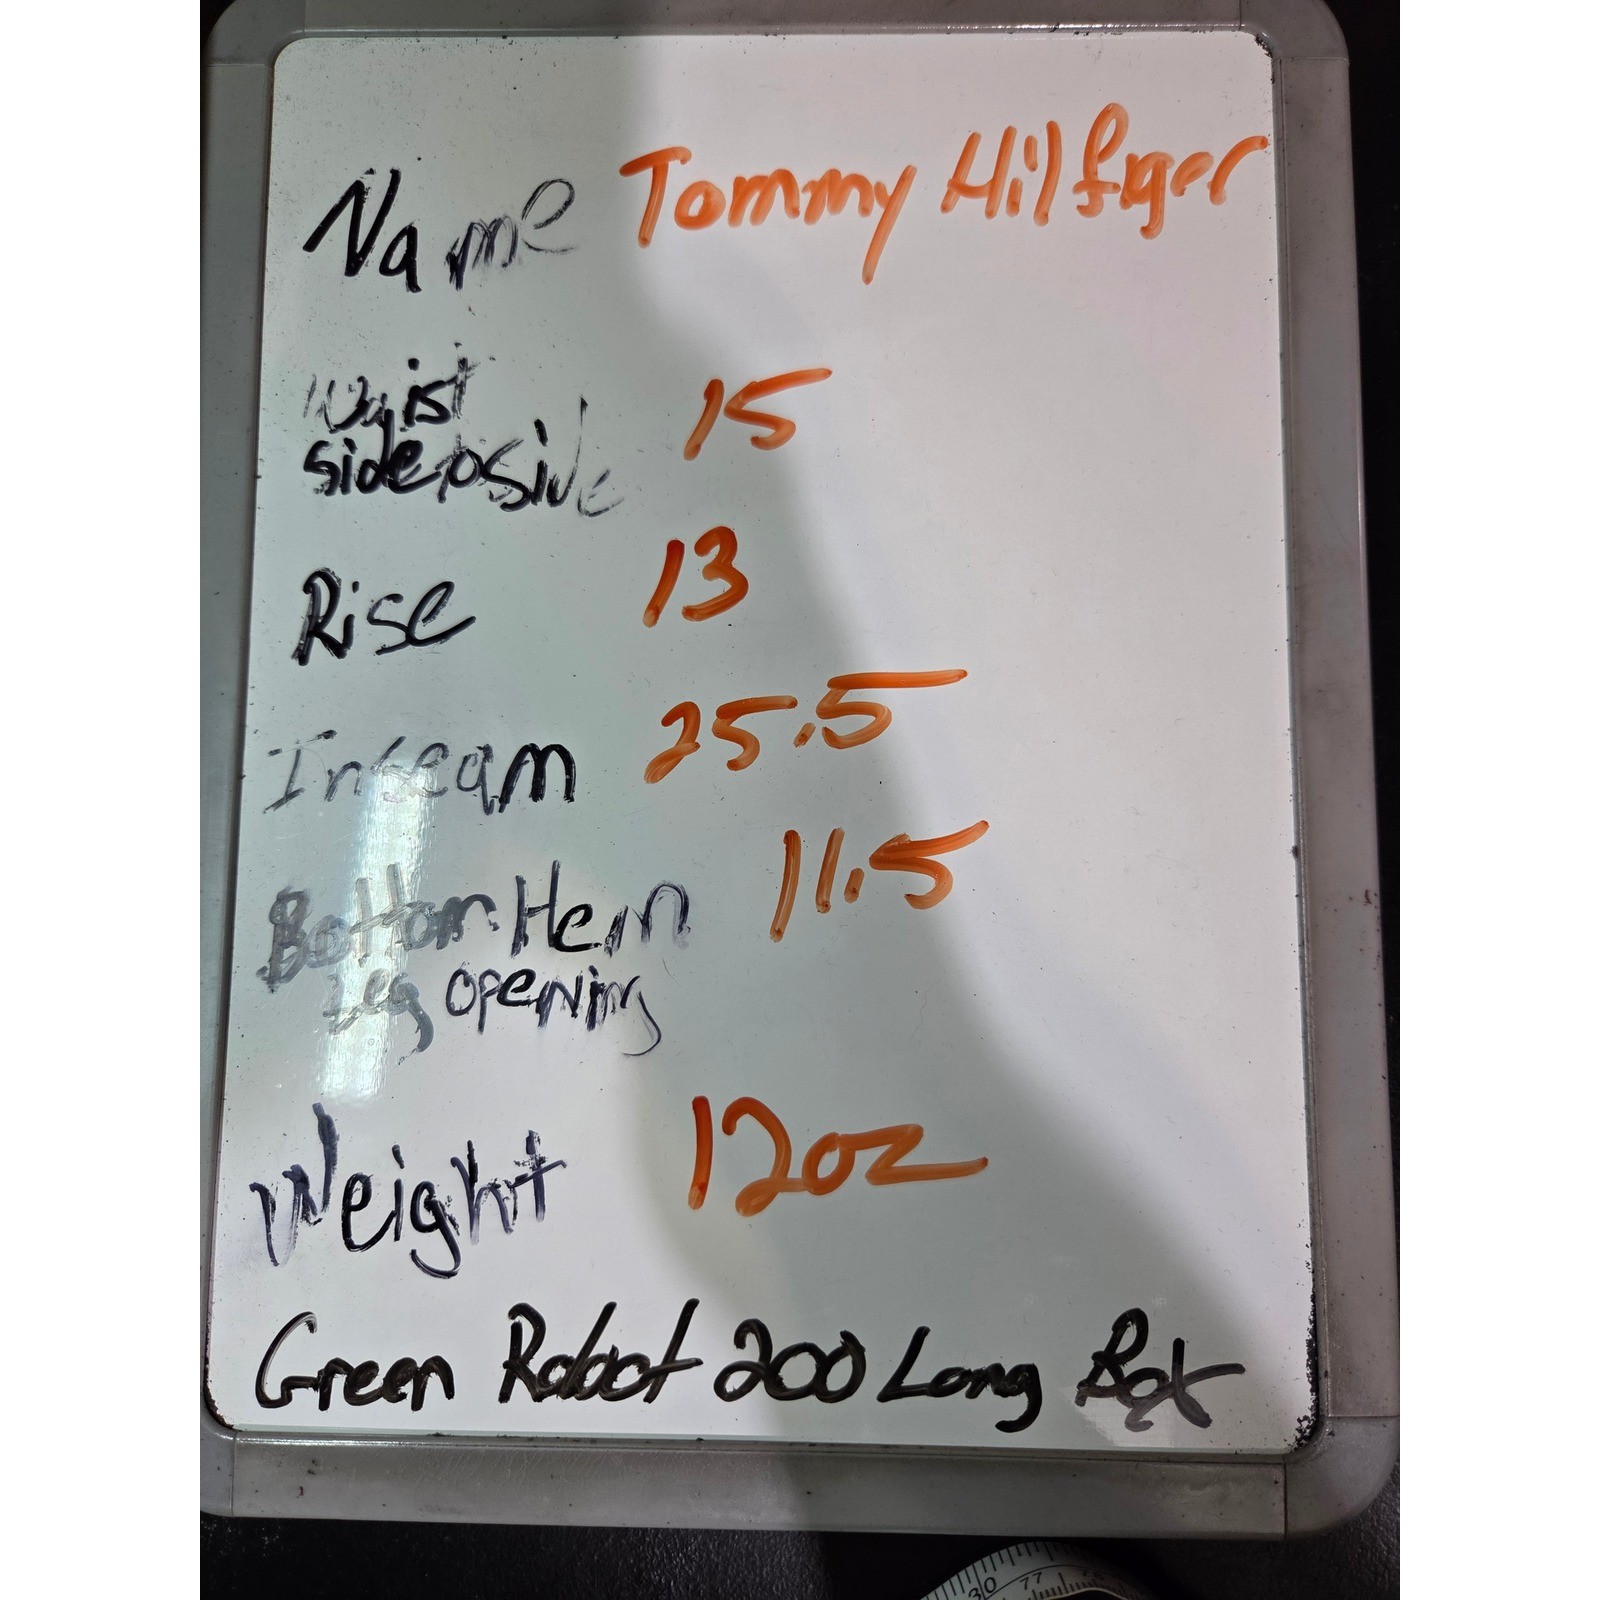 Name Tommy Hilfiger
Waist 15
side to side
Rise 13
Inseam 25.5
Bottom Hem 11.5
Leg opening
Weight 12oz
Green Robot 200 Long Box
30 77